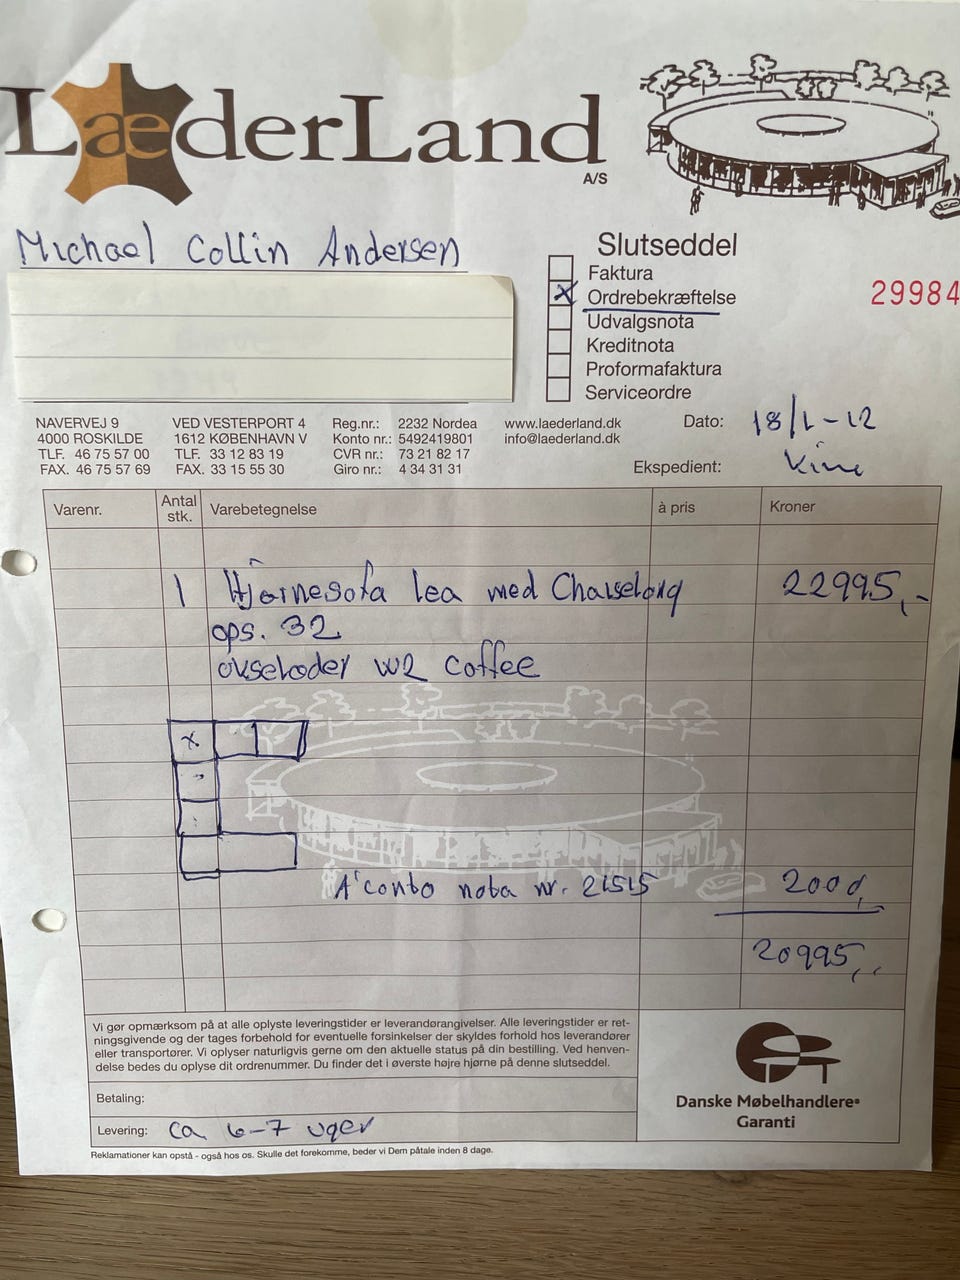 LæderLand
A/S
Michael Collin Andersen
Slutseddel
Faktura
x Ordrebekræftelse
Udvalgsnota
Kreditnota
Proformafaktura
Serviceordre
29984
NAVERVEJ 9
4000 ROSKILDE
TLF. 46 75 57 00
FAX. 46 75 57 69
VED VESTERPORT 4
1612 KØBENHAVN V
TLF. 33 12 83 19
FAX. 33 15 55 30
Reg.nr.: 2232 Nordea
Konto nr.: 5492419801
CVR nr.: 73 21 82 17
Giro nr.: 4 34 31 31
www.laederland.dk
info@laederland.dk
Dato: 18/1-12
Ekspedient:
Varenr. Antal stk. Varebetegnelse à pris Kroner
1 Hjørnesofa Lea med Chaiselong 22995,-
ops. 32
okselæder W2 coffee
x
A'conto nota nr. 21515 2000,
20995,-
Vi gør opmærksom på at alle oplyste leveringstider er leverandørangivelser. Alle leveringstider er ret-
ningsgivende og der tages forbehold for eventuelle forsinkelser der skyldes forhold hos leverandører
eller transportører. Vi oplyser naturligvis gerne om den aktuelle status på din bestilling. Ved henven-
delse bedes du oplyse dit ordrenummer. Du finder det i øverste højre hjørne på denne slutseddel.
Betaling:
Levering: ca 6-7 uger
Danske Møbelhandlere
Garanti
Reklamationer kan opstå - også hos os. Skulle det forekomme, beder vi Dem påtale inden 8 dage.